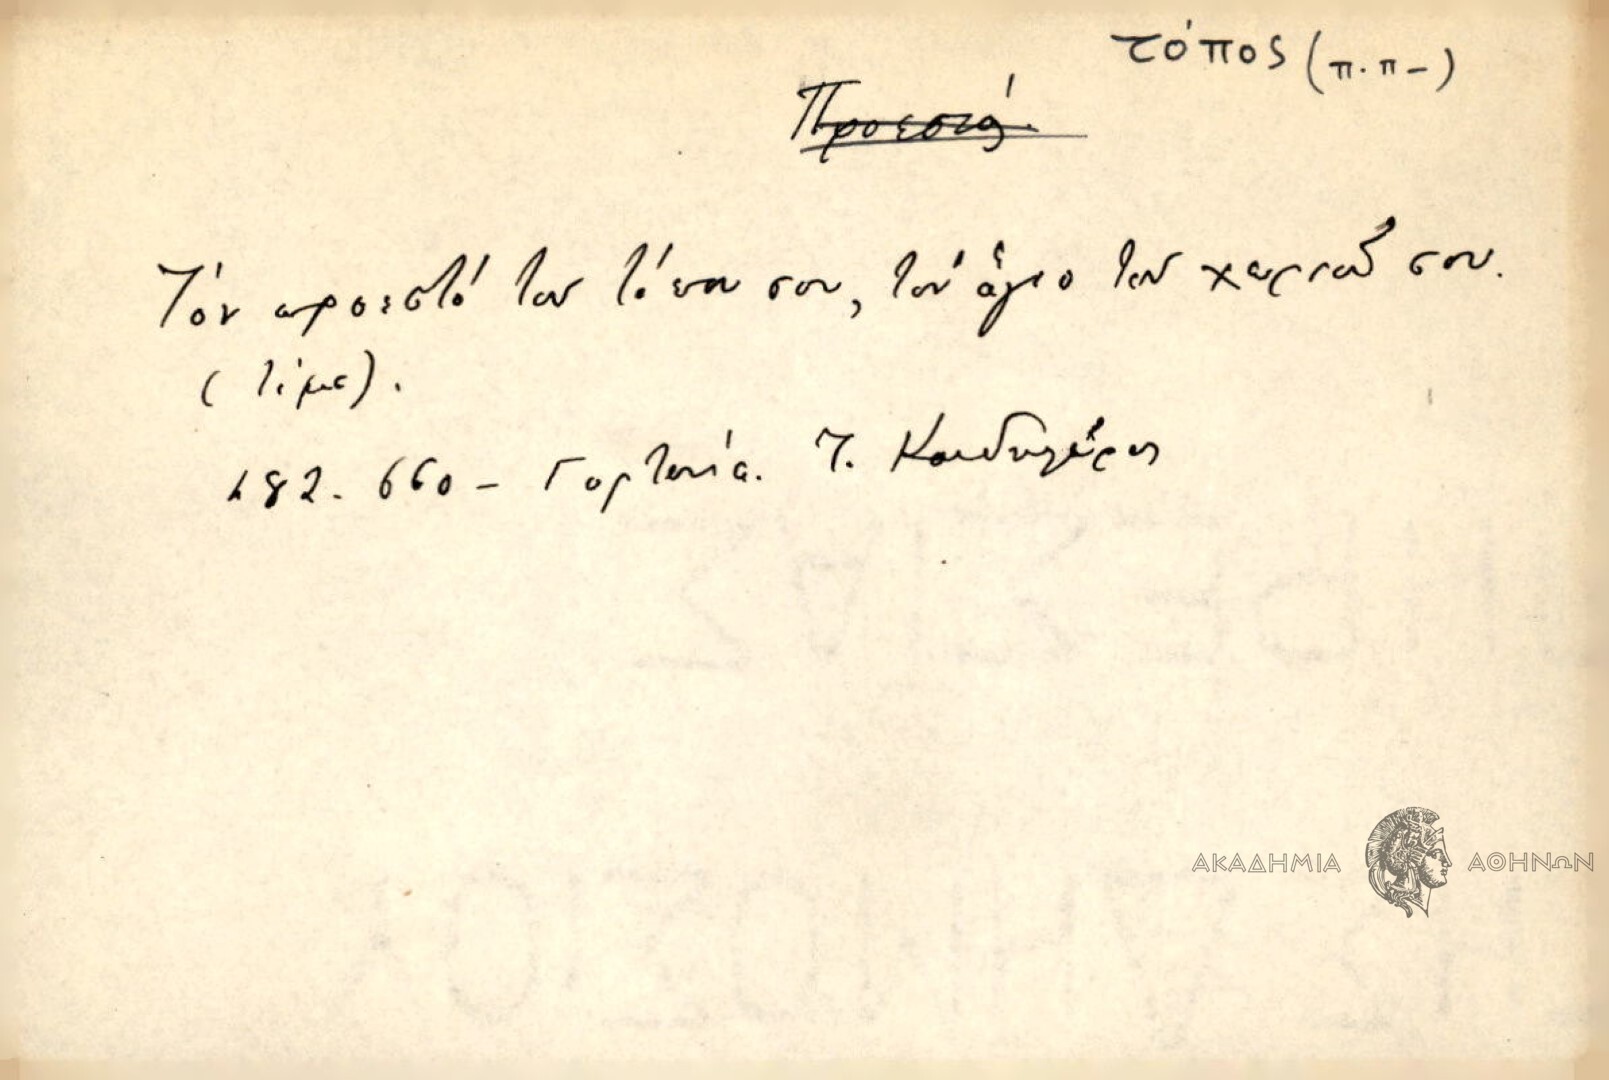 τόπος (π.π-)
Προεστός
Τόν προεστό τοῦ τόπου σου, τόν ἅγιο τοῦ χωριοῦ σου.
(τίμα).
182. 660 - Γορτυνία. Τ. Κανδηλώρος
ΑΚΑΔΗΜΙΑ ΑΘΗΝΩΝ